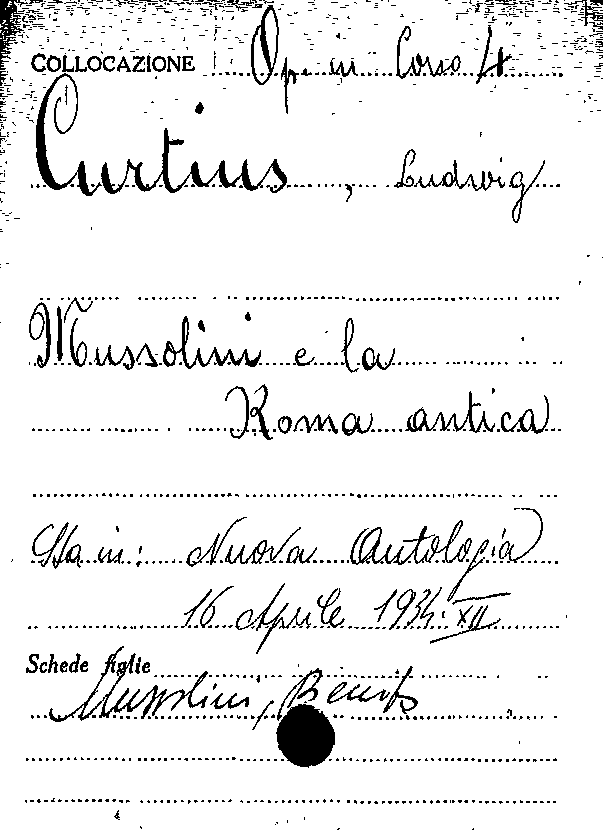 COLLOCAZIONE Op. in Corso 4
Curtius, Ludwig
Mussolini e la
Roma antica
Sta in: Nuova Antologia
16 Aprile 1934·XII
Schede figlie
Mussolini, Benito